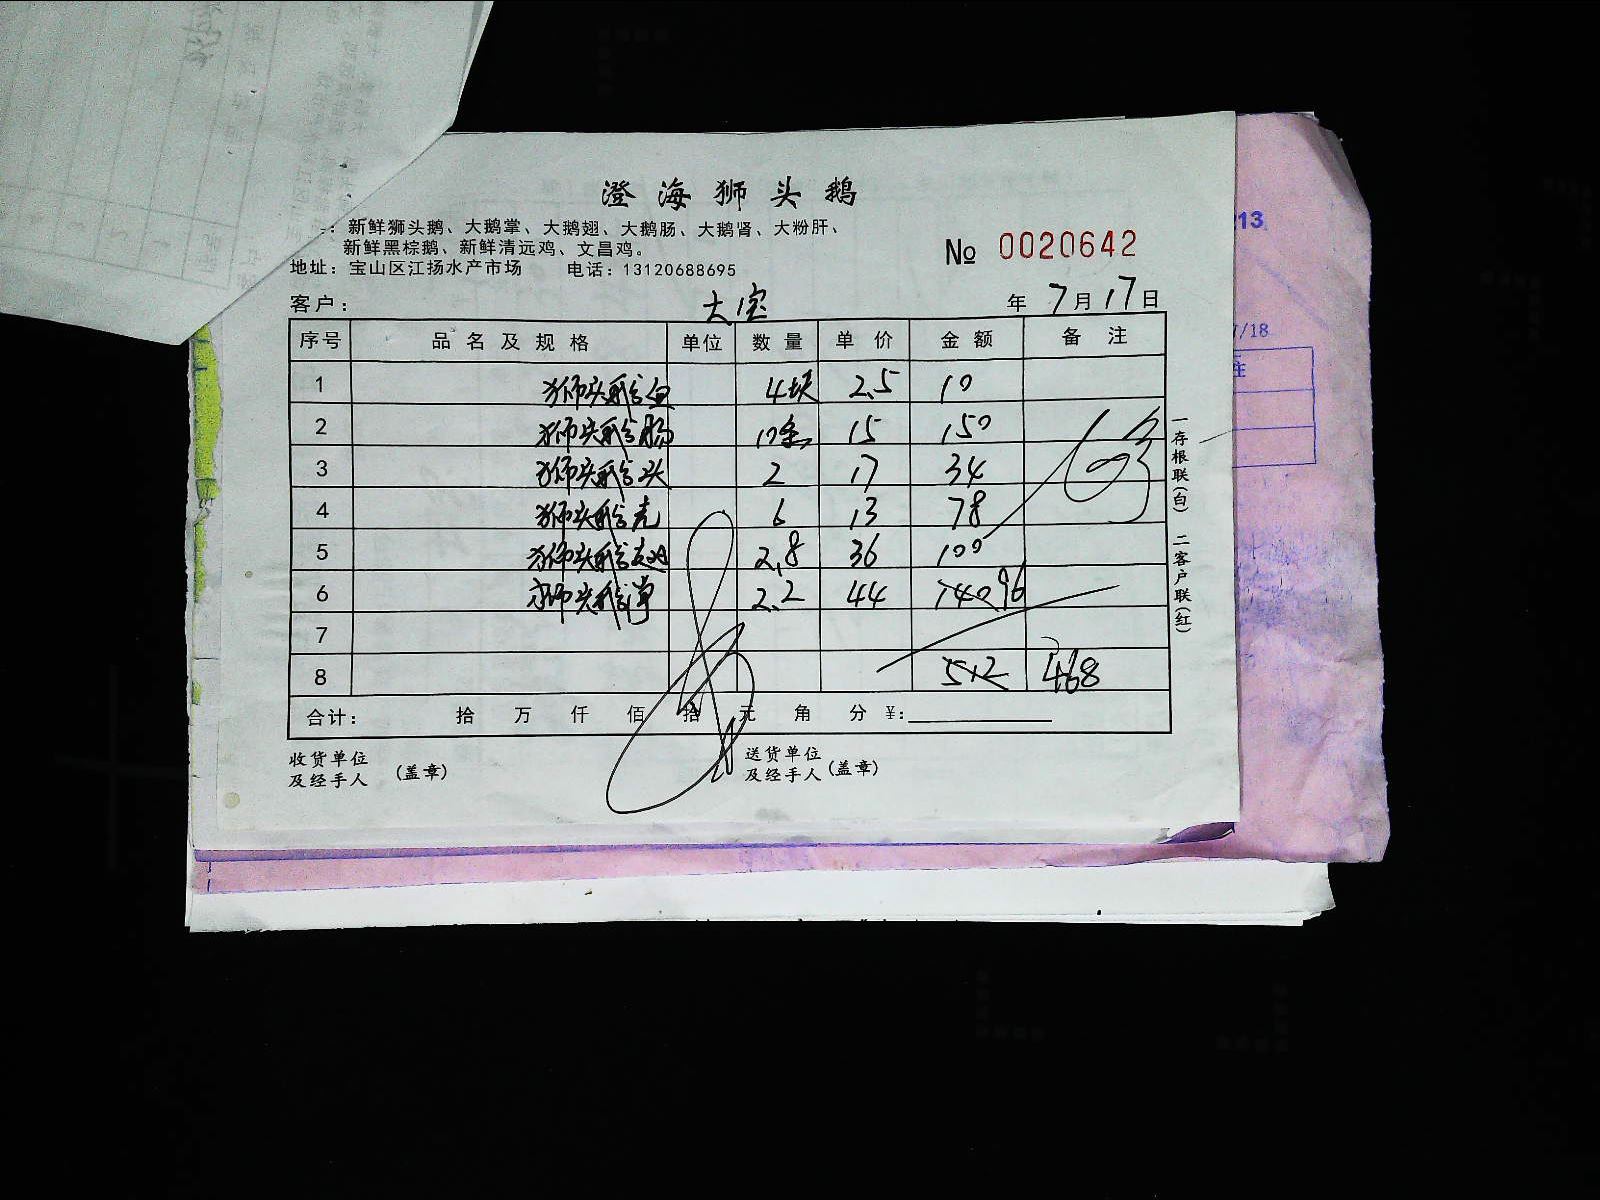 澄海狮头鹅
：新鲜狮头鹅、大鹅掌、大鹅翅、大鹅肠、大鹅肾、大粉肝、
新鲜黑棕鹅、新鲜清远鸡、文昌鸡。
№ 0020642
地址：宝山区江扬水产市场 电话：13120688695
客户： 大宝 年 7月17日
序号 品名及规格 单位 数量 单价 金额 备注
1 狮头鹅血 4块 2.5 10
2 狮头鹅肠 10条 15 150
3 狮头鹅头 2 17 34
4 狮头鹅壳 6 13 78
5 狮头鹅翅 2.8 36 100
6 狮头鹅掌 2.2 44 96
7
8 512 468
合计： 拾 万 仟 佰 拾 元 角 分 ¥：
收货单位
及经手人 （盖章）
送货单位
及经手人（盖章）
一存根联（白） 二客户联（红）
213
7/18